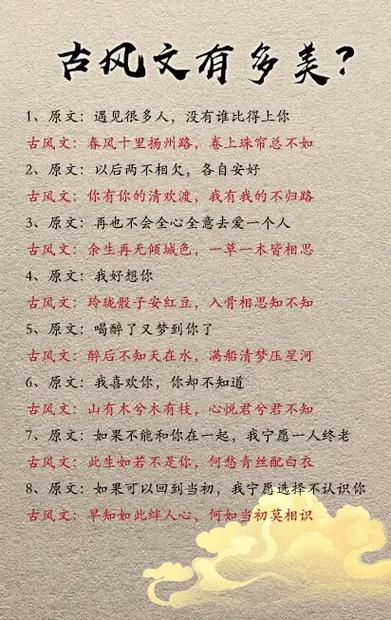 古风文有多美？
1、原文：遇见很多人，没有谁比得上你
古风文：春风十里扬州路，卷上珠帘总不如
2、原文：以后两不相欠，各自安好
古风文：你有你的清欢渡，我有我的不归路
3、原文：再也不会全心全意去爱一个人
古风文：余生再无倾城色，一草一木皆相思
4、原文：我好想你
古风文：玲珑骰子安红豆，入骨相思知不知
5、原文：喝醉了又梦到你了
古风文：醉后不知天在水，满船清梦压星河
6、原文：我喜欢你，你却不知道
古风文：山有木兮木有枝，心悦君兮君不知
7、原文：如果不能和你在一起，我宁愿一人终老
古风文：此生如若不是你，何愁青丝配白衣
8、原文：如果可以回到当初，我宁愿选择不认识你
古风文：早知如此绊人心，何如当初莫相识